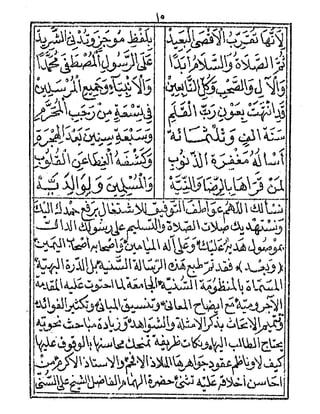 ١٥
لأنها تقرب الأقصى البعيد بلفظ موجز وتدني الشريد
ثم الصلاة والسلام أبدا على الرسول المصطفى محمدا
والآل والصحب وكل التابعين والأنبياء وجميع المرسلين
قد انتهت بعون رب القلم في تسعة من رجب المحرم
سنة ألف وثلثمائة وسبعة سنين بعد الهجرة
أسأله مغفرة الذنوب وكشفه الغطا عن القلوب
لمن قراها بالرضا والديه والمسلمين ولوالديه
نسألك اللهم عواطف التوفيق للاشتغال برفع حمدك اليك
ونستهديك صلات الصلاة والتسليم على رسولك الدالت
بموصول هديه عليك وعلى آله الميامين وأصحابه أصحاب اليمين
(وبعد) فقد تم طبع هذه الرسالة السنية بل الدرة البهية
المسماة بالمنظومة الشنية الجامعة لما احتوت عليه المقدمة
الآجرومية مع ايضاح المعاني وتنسيق المباني وتكثير الفوائد
وتتميم الابحاث بذكر الامثلة والشواهد وزيادة مباحث نحوية
يحتاج الطالب اليها ونكات ظريفة تمنحك محاسنها بالوقوف عليها
كيف لا وناظم عقود جواهرها الملاذ الافخم والاستاذ الأكرم من
احاسن أخلاقه عليه تثني حضرة الهمام الفاضل الشيخ على السني